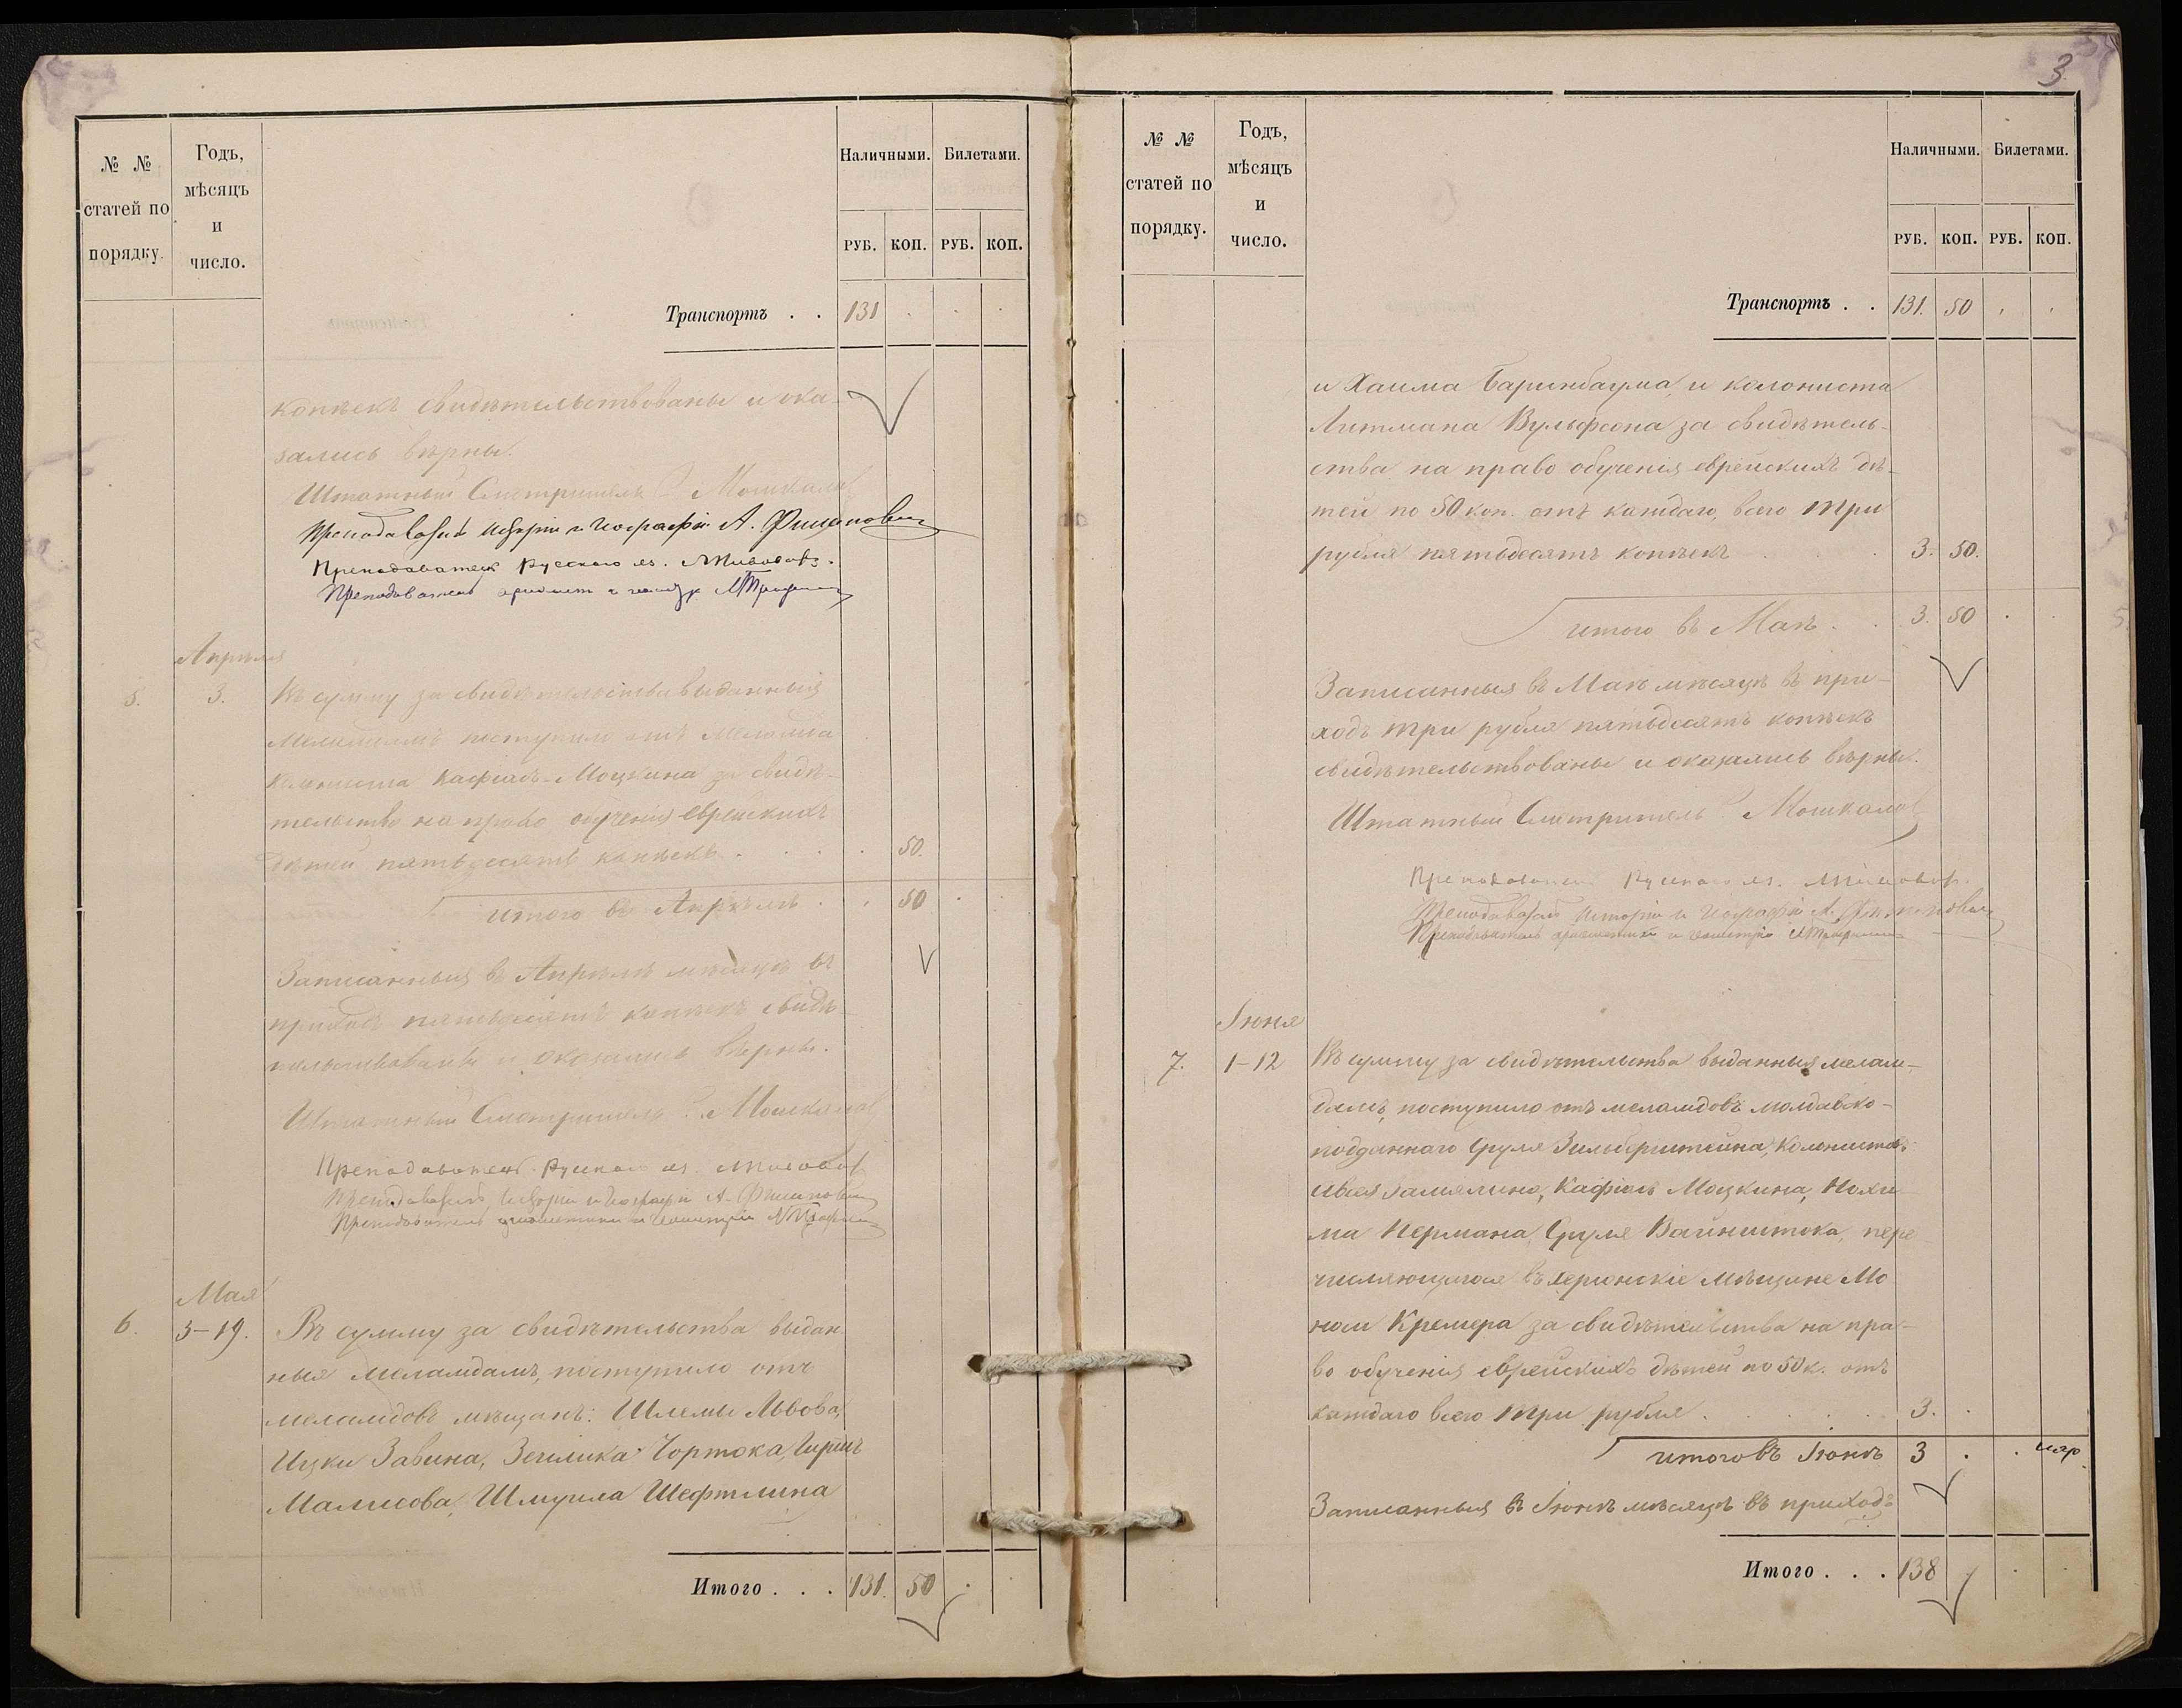 № №
статей по
порядку.
Годъ,
мѣсяцъ
и
число.
Наличными. Билетами.
РУБ. КОП. РУБ. КОП.
Транспортъ . . 131
копѣекъ свидѣтельствованы и ока-
зались вѣрны.
Штатный Смотритель Мошкалов
Преподаватель Исторіи и Географіи А. Филипович
Преподаватель Русскаго яз.
Преподаватель
Апрѣля
5. 3. Въ сумму за свидѣтельства выданныя
меламдамъ поступило отъ меламда
колониста Кафіелъ Моцкина за свидѣ-
тельство на право обученія еврейскихъ
дѣтей пятьдесятъ копѣекъ . . . . 50.
итого въ Апрѣлѣ . . 50
Записанныя въ Апрѣлѣ мѣсяцѣ въ
приходъ пятьдесятъ копѣекъ свидѣ-
тельствованы и оказались вѣрны.
Штатный Смотритель Мошкалов
Преподаватель Русскаго яз.
Преподаватель Исторіи и Географіи А. Филипович
Преподаватель ариѳметики и Геометріи
Мая
6. 3-19. Въ сумму за свидѣтельства выдан
ныя меламдамъ, поступило отъ
меламдовъ мѣщанъ: Шлемы Львова,
Ицки Завина, Зелика Чортока, Гиршъ
Малисова, Шмуила Шефтлина
Итого . . . 131. 50
3
№ №
статей по
порядку.
Годъ,
мѣсяцъ
и
число.
Наличными. Билетами.
РУБ. КОП. РУБ. КОП.
Транспортъ . . 131. 50
и Хаима Баринбаума, и колониста
Литмана Вульфсона за свидѣтель-
ства на право обученія еврейскихъ дѣ-
тей по 50 коп. отъ каждаго, всего три
рубля пятьдесятъ копѣекъ . . . 3. 50.
итого въ Маѣ . . 3. 50
Записанныя въ Маѣ мѣсяцѣ въ при-
ходъ три рубля пятьдесятъ копѣекъ
свидѣтельствованы и оказались вѣрны.
Штатный Смотритель Мошкалов
Преподаватель Русскаго яз.
Преподаватель Исторіи и Географіи А. Филипович
Преподаватель ариѳметики и Геометріи
Іюня
7. 1-12 Въ сумму за свидѣтельства выданныя мелам-
дамъ, поступило отъ меламдовъ молдавско-
подданнаго Сруля Зильберштейна, Колонистовъ
Кафіелъ Моцкина, Нохи-
ма Нермана, Сруля Вайнштока, пере
числяющагося въ херсонскіе мѣщане Мо
Кремера за свидѣтельства на пра-
во обученія еврейскихъ дѣтей по 50 к. отъ
каждаго всего три рубля . . . . . 3.
итого въ Іюнѣ 3
Записанныя въ Іюнѣ мѣсяцѣ въ приходъ
Итого . . . 138